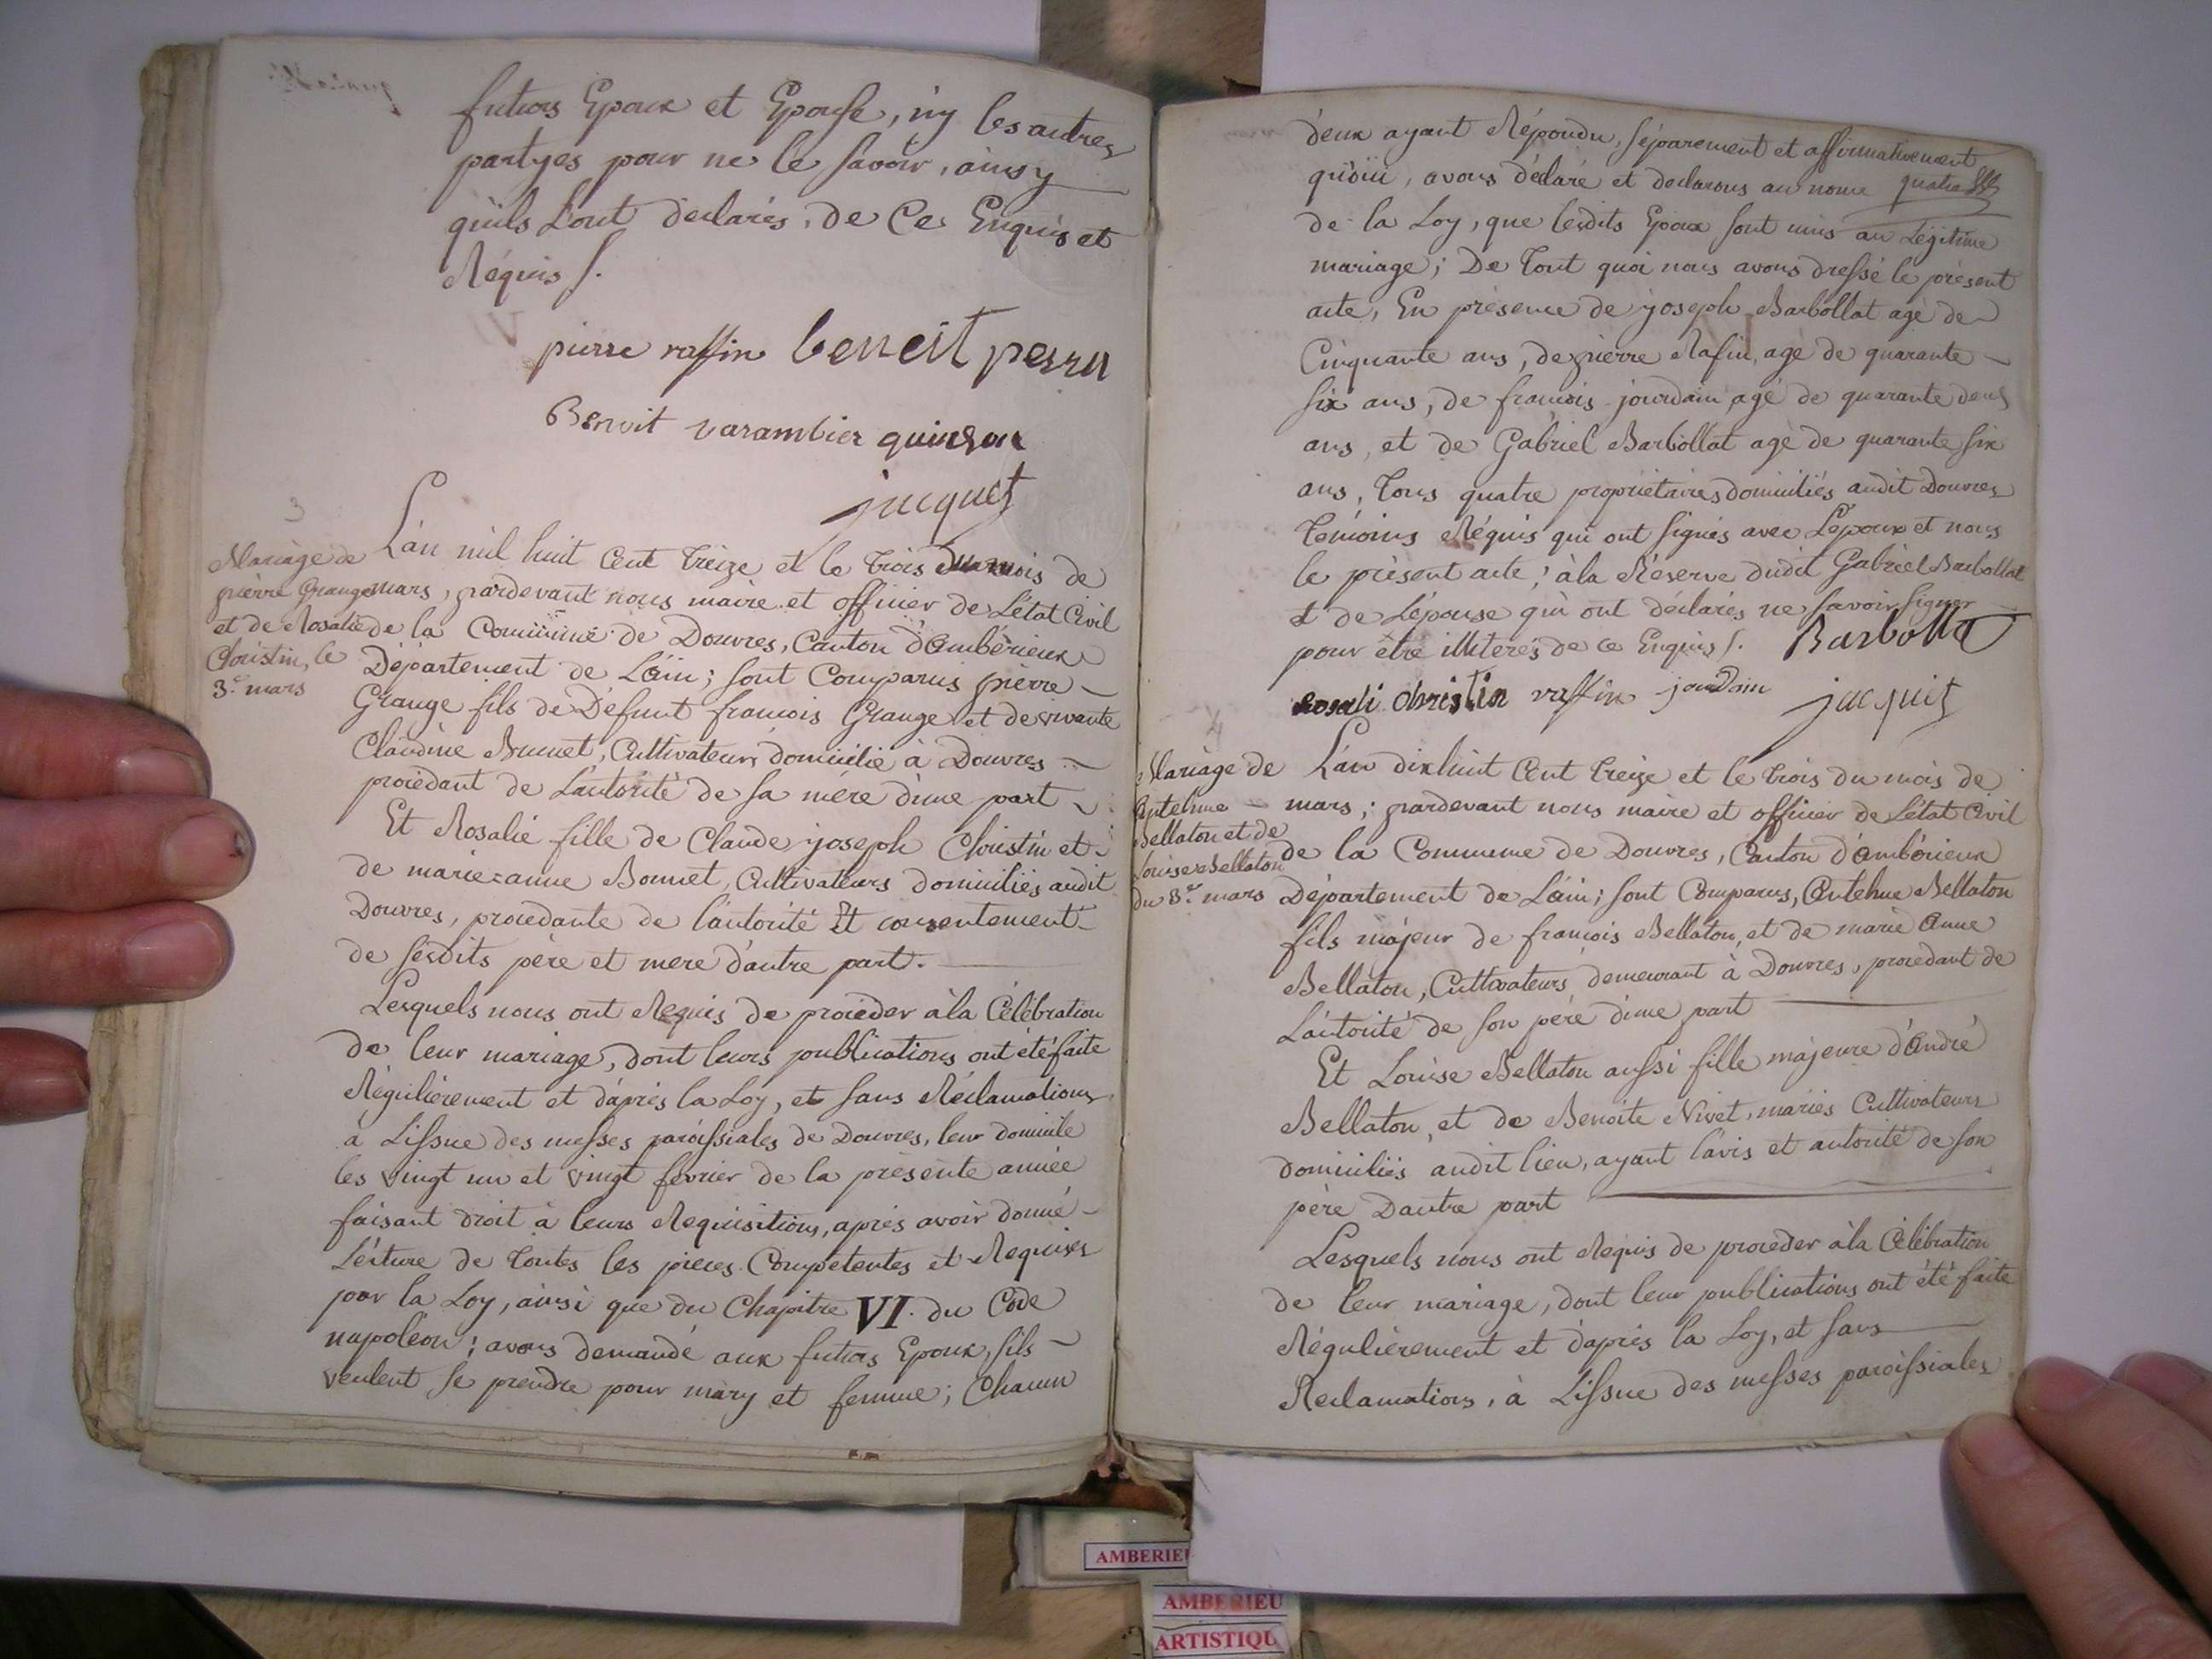 futurs Epoux et Epouse, n'y les autres
partyes pour ne le savoir, ainsy
qu'ils L'ont déclarés, de Ce Enquis et
Réquis /.
pierre raffin benoit perru
Benoit varambier quinson
jacquet
3
Mariage de
pierre Grange
et de Rosalie
Christin, le
3.e mars
L'an mil huit Cent treize et le trois du mois de
mars, pardevant nous maire et officier de L'état Civil
de la Commune de Douvres, Canton d'ambérieux
Département de L'ain; sont Comparus pierre
Grange fils de Défunt francois Grange et de vivante
Claudine Brunet, Cultivateurs domicilié à Douvres
procédant de L'autorité de sa mére d'une part
Et Rosalie fille de Claude joseph Christin et
de marie-anne Bonnet, Cultivateurs domiciliés audit
Douvres, procedante de l'autorité Et consentement
de sesdits père et mere d'autre part.
Lesquels nous ont Requis de procéder à la Célébration
de leur mariage, dont leurs publications ont été faite
Régulièrement et d'après la Loy, et sans Réclamations
à L'issue des messes paroissiales de Douvres, leur domicile
les vingt un et vingt février de la présente année
faisant droit à leurs Requisitions, après avoir donné
Lécture de toutes les pieces Compétentes et Requises
par la Loy, ainsi que du Chapitre VI. du Code
napoléon; avons demandé aux futurs Epoux, s'ils
veulent se prendre pour mary et femme; Chacun
d'eux ayant Répondu, séparement et affirmativement
qu'oüi, avons déclaré et declarons au nome
quatre
de la Loy, que lesdits Epoux sont unis au Légitime
mariage; De tout quoi nous avons dressé le présent
acte, En présence de joseph Barbollat agé de
Cinquante ans, de pierre Rafin, agé de quarante
six ans, de francois jourdain agé de quarante deux
ans, et de Gabriel Barbollat agé de quarante six
ans, tous quatre propriétaires domiciliés audit Douvres
témoins Réquis qui ont signés avec L'époux et nous
le présent acte; à la Réserve dudit Gabriel Barbollat
et de L'épouse qui ont déclarés ne savoir signer
pour être illiterés de ce Enquis /. Barbollat
Rosali christin raffin jourdain jacquet
4
Mariage de
Antelme
Bellaton et de
Louise Bellaton
du 3.e mars
L'an dix huit Cent treize et le trois du mois de
mars; pardevant nous maire et officier de L'état Civil
de la Commune de Douvres, Canton d'ambérieux
Département de L'ain; sont Comparus, Antelme Bellaton
fils majeur de francois Bellaton, et de marie Anne
Bellaton, Cultivateurs demeurant à Douvres, procedant de
L'autorité de son père d'une part
Et Louise Bellaton aussi fille majeure d'André
Bellaton, et de Benoite Nivet, mariés Cultivateurs
domiciliés audit lieu, ayant l'avis et autorité de son
père D'autre part
Lesquels nous ont Réquis de proceder à la Célébration
de leur mariage, dont leur publications ont été faite
Régulièrement et d'après la Loy, et sans
Reclamations, à L'issue des messes paroissiales
AMBERIEU
AMBERIEU
ARTISTIQU